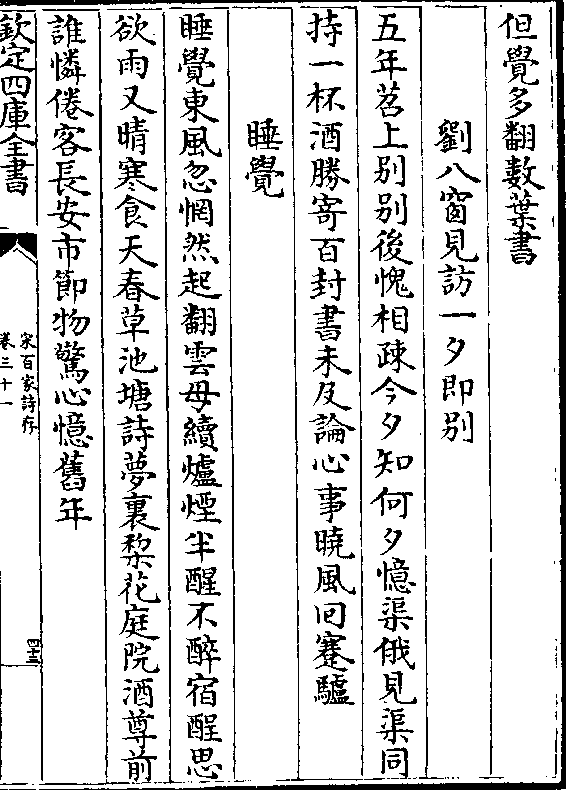 但覺多翻數葉書
劉八窗見訪一夕即别
五年苕上别别後愧相疎今夕知何夕憶渠俄見渠同
持一杯酒勝寄百封書未及論心事曉風回蹇驢
睡覺
睡覺東風忽惘然起翻雲母續爐煙半醒不醉宿酲思
欲雨又晴寒食天春草池塘詩夢裏棃花庭院酒尊前
誰憐倦客長安市節物驚心憶舊年
欽定四庫全書
宋百家詩存
卷三十一
四十三